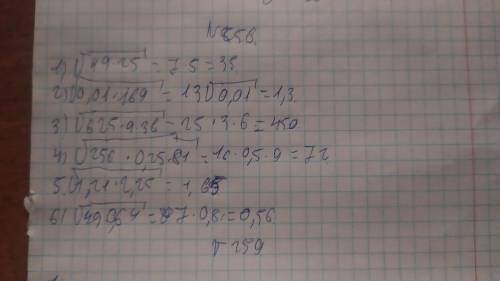 №256.
1) √49·25 = 7·5 = 35
2) √0,01·169 = 13√0,01 = 1,3
3) √625·9·36 = 25·3·6 = 450
4) √256·0,25·81 = 16·0,5·9 = 72
5. √1,21·2,25 = 1,65
6) √49·0,64 = 7·0,8 = 0,56
259